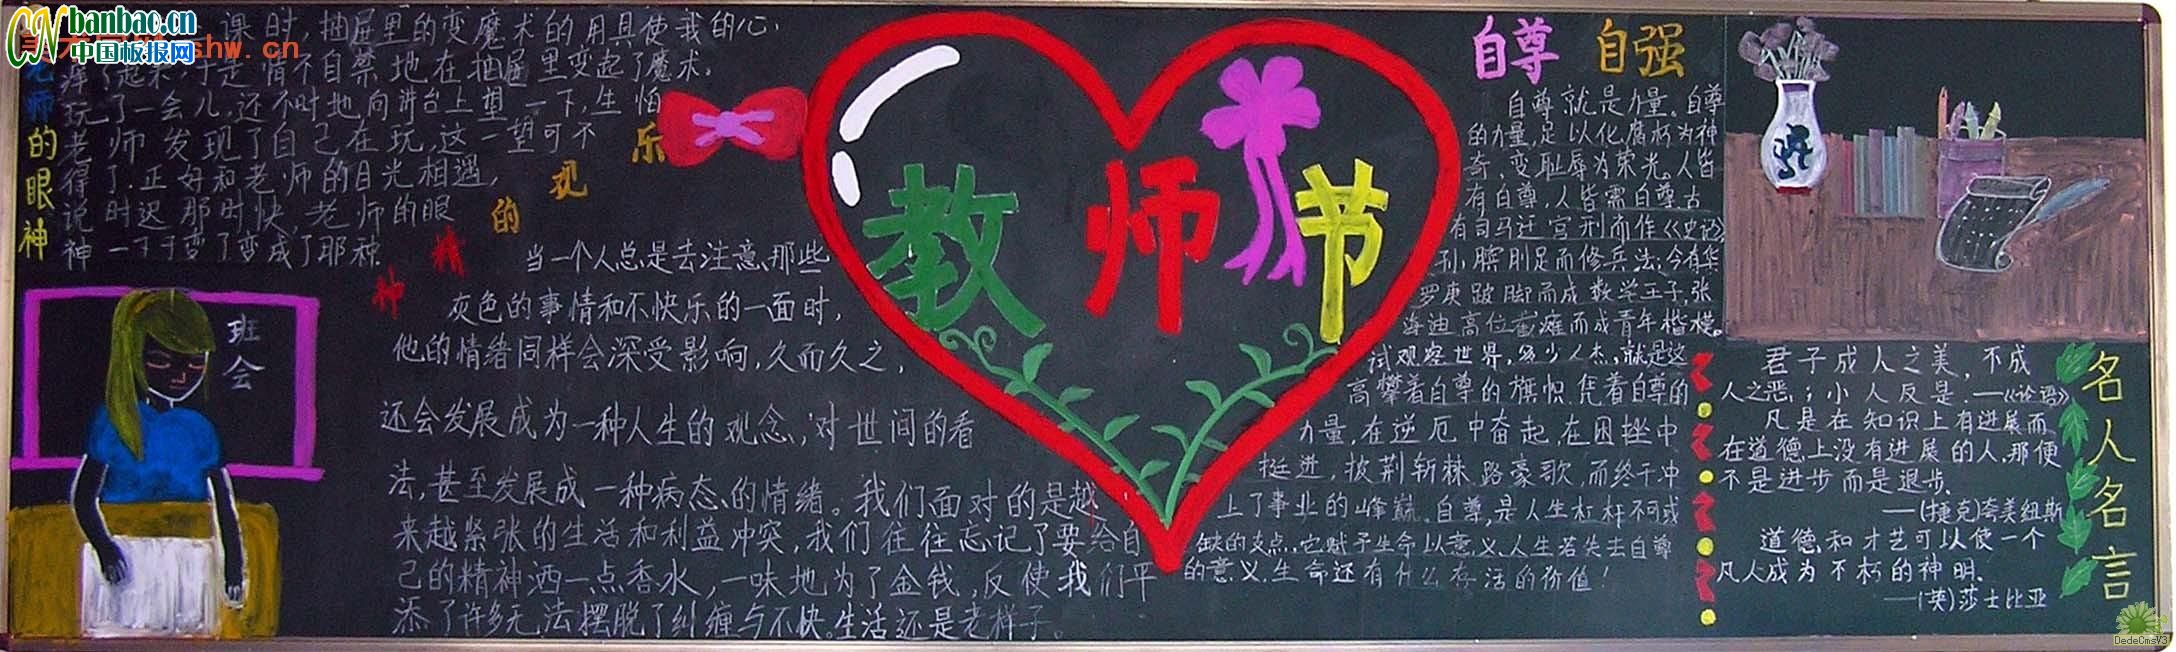 banbao.cn
中国板报网
shw.cn
老师的眼神
课时,抽屉里的变魔术的用具使我的心,
痒了起来,于是情不自禁地在抽屉里变起了魔术。
玩了一会儿,还不时地向讲台上望一下,生怕
老师发现了自己在玩,这一望可不
得了.正好和老师的目光相遇,
说时迟那时快,老师的眼
神一下子变了变成了那种.
班会
神精的观乐
当一个人总是去注意那些
灰色的事情和不快乐的一面时,
他的情绪同样会深受影响,久而久之,
还会发展成为一种人生的观念,对世间的看
法,甚至发展成一种病态的情绪。我们面对的是越
来越紧张的生活和利益冲突,我们往往忘记了要给自
己的精神洒一点香水,一味地为了金钱,反使我们平
添了许多无法摆脱了纠缠与不快。生活还是老样子。
教师节
自尊 自强
自尊就是力量。自尊
的力量,足以化腐朽为神
奇、变耻辱为荣光。人皆
有自尊,人皆需自尊古
有司马迁宫刑而作《史记》
孙膑刖足而修兵法;今有华
罗庚跛脚而成数学王子,张
海迪高位截瘫而成青年楷模。
试观察世界,多少人杰,就是这
高攀着自尊的旗帜.凭着自尊的
力量,在逆厄中奋起,在困挫中
挺进,披荆斩棘.路豪歌,而终于冲
上了事业的峰巅。自尊,是人生杠杆不可或
缺的支点,它赋予生命以意义,人生若失去自尊
的意义,生命还有什么存活的价值!
名人名言
君子成人之美,不成
人之恶;小人反是.——《论语》
凡是在知识上有进展而
在道德上没有进展的人,那便
不是进步而是退步.
——(捷克)夸美纽斯
道德和才艺可以使一个
凡人成为不朽的神明.
——(英)莎士比亚
DedeCmsV3